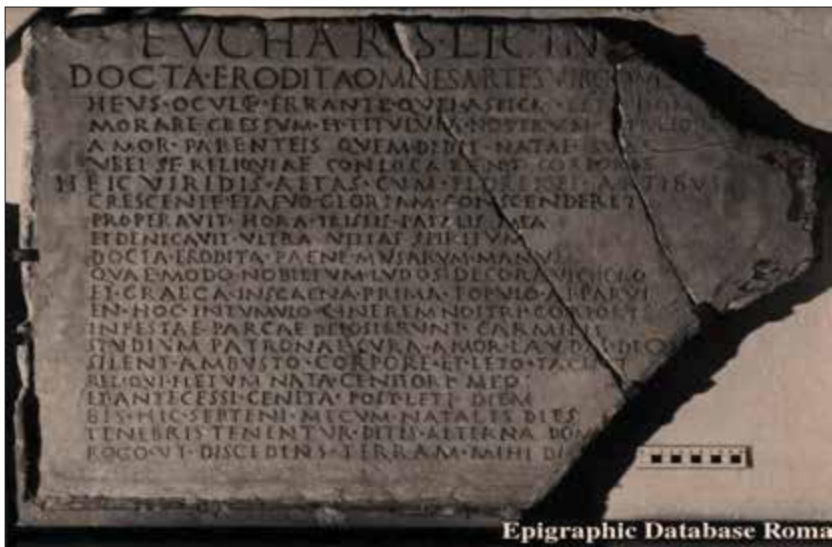 EVCHARIS·LICIN
DOCTA·ERODITA OMNES ARTES VIRGO
HEVS·OCVLO·ERRANTE·QVEI ASPICIS LETI DOM
MORARE GRESSVM·ET TITVLVM·NOSTRVM
AMOR·PARENTEIS QVEM DEDIT NATAE SVAE
VBEI SE RELIQVIAE CONLOCARENT CORPORIS
HEIC VIRIDIS·AETAS·CVM·FLORERET·ARTIBVS
CRESCENTE ET AEVO GLORIAM·CONSCENDERET
PROPERAVIT HORA TRISTIS FATALIS MEA
ET DENEGAVIT·VLTRA VEITAE SPIRITVM
DOCTA·ERODITA·PAENE·MVSARVM·MANV
QVAE MODO NOBILIVM LVDOS DECORAVI CHORO
ET·GRAECA·IN SCAENA·PRIMA·POPVLO·APPARVI
EN·HOC·IN TVMVLO·CINEREM NOSTRI CORPORI
INFESTAE·PARCAE DEPOSIERVNT·CARMINE
STVDIVM PATRONAE CVRA·AMOR·LAVDES·DECV
SILENT·AMBVSTO·CORPORE·ET LETO·TACENT
RELIQVI FLETVM NATA GENITORI MEO
ET ANTECESSI·GENITA·POST·LETI DIEM
BIS·HIC SEPTENI·MECVM·NATALES DIES
TENEBRIS TENENTVR·DITIS·AETERNA DOM
ROGO·VT·DISCEDENS·TERRAM·MIHI DI
Epigraphic Database Roma